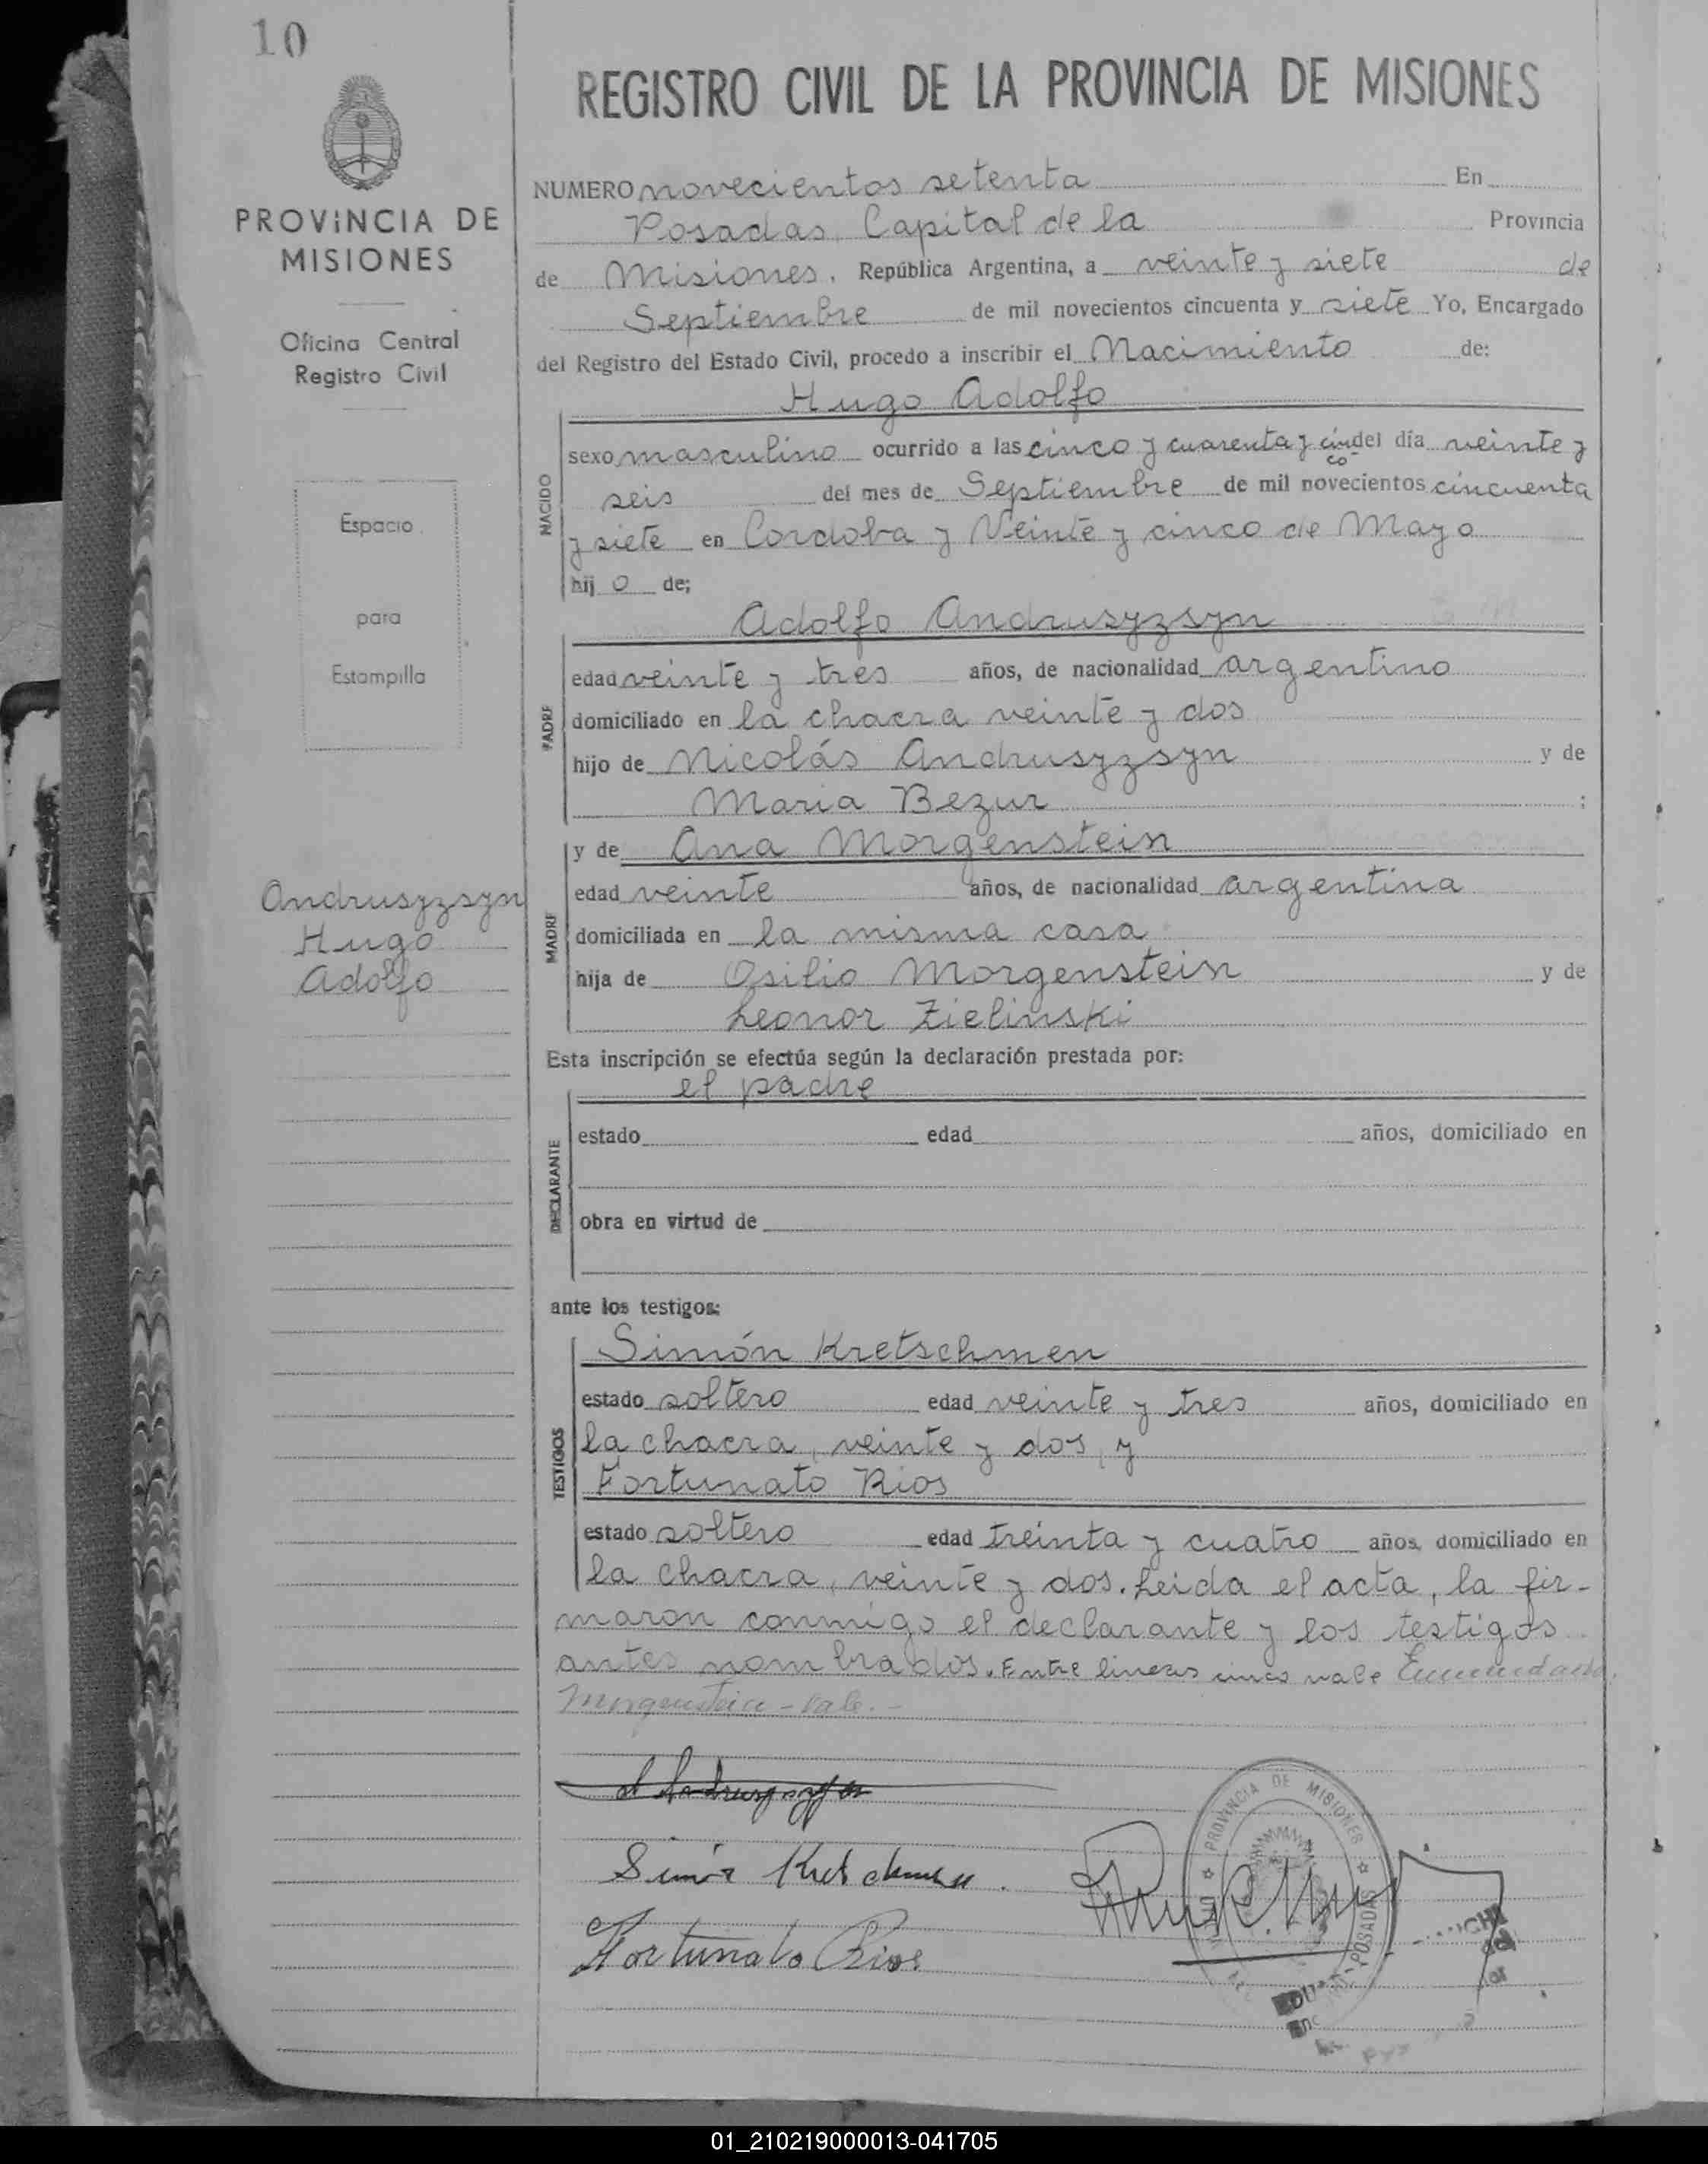 10
REGISTRO CIVIL DE LA PROVINCIA DE MISIONES
PROVINCIA DE
MISIONES
Oficina Central
Registro Civil
Espacio
para
Estampilla
Andrusyzsyn
Hugo
Adolfo
NUMERO novecientos setenta En
Posadas, Capital de la Provincia
de Misiones. República Argentina, a veinte y siete de
Septiembre de mil novecientos cincuenta y siete Yo, Encargado
del Registro del Estado Civil, procedo a inscribir el Nacimiento de:
Hugo Adolfo
NACIDO
sexo masculino ocurrido a las cinco y cuarenta y cinco del día veinte y
seis del mes de Septiembre de mil novecientos cincuenta
y siete en Cordoba y Veinte y cinco de Mayo
hij o de;
Adolfo Andrusyzsyn
PADRE
edad veinte y tres años, de nacionalidad argentino
domiciliado en la chacra veinte y dos
hijo de Nicolás Andrusyzsyn y de
Maria Bezur :
y de Ana Morgenstein
MADRE
edad veinte años, de nacionalidad argentina
domiciliada en la misma casa
hija de Osilio Morgenstein y de
Leonor Zielinski
Esta inscripción se efectúa según la declaración prestada por:
el padre
DECLARANTE
estado edad años, domiciliado en
obra en virtud de
ante los testigos:
TESTIGOS
Simón Kretschmen
estado soltero edad veinte y tres años, domiciliado en
la chacra, veinte y dos, y
Fortunato Rios
estado soltero edad treinta y cuatro años, domiciliado en
la chacra, veinte y dos. Leida el acta, la fir-
maron conmigo el declarante y los testigos
antes nombrados. Entre lineas cinco vale Enmendado
Morgenstein - Vale. -
Fortunato Rios
PROVINCIA DE MISIONES
POSADAS
01_210219000013-041705